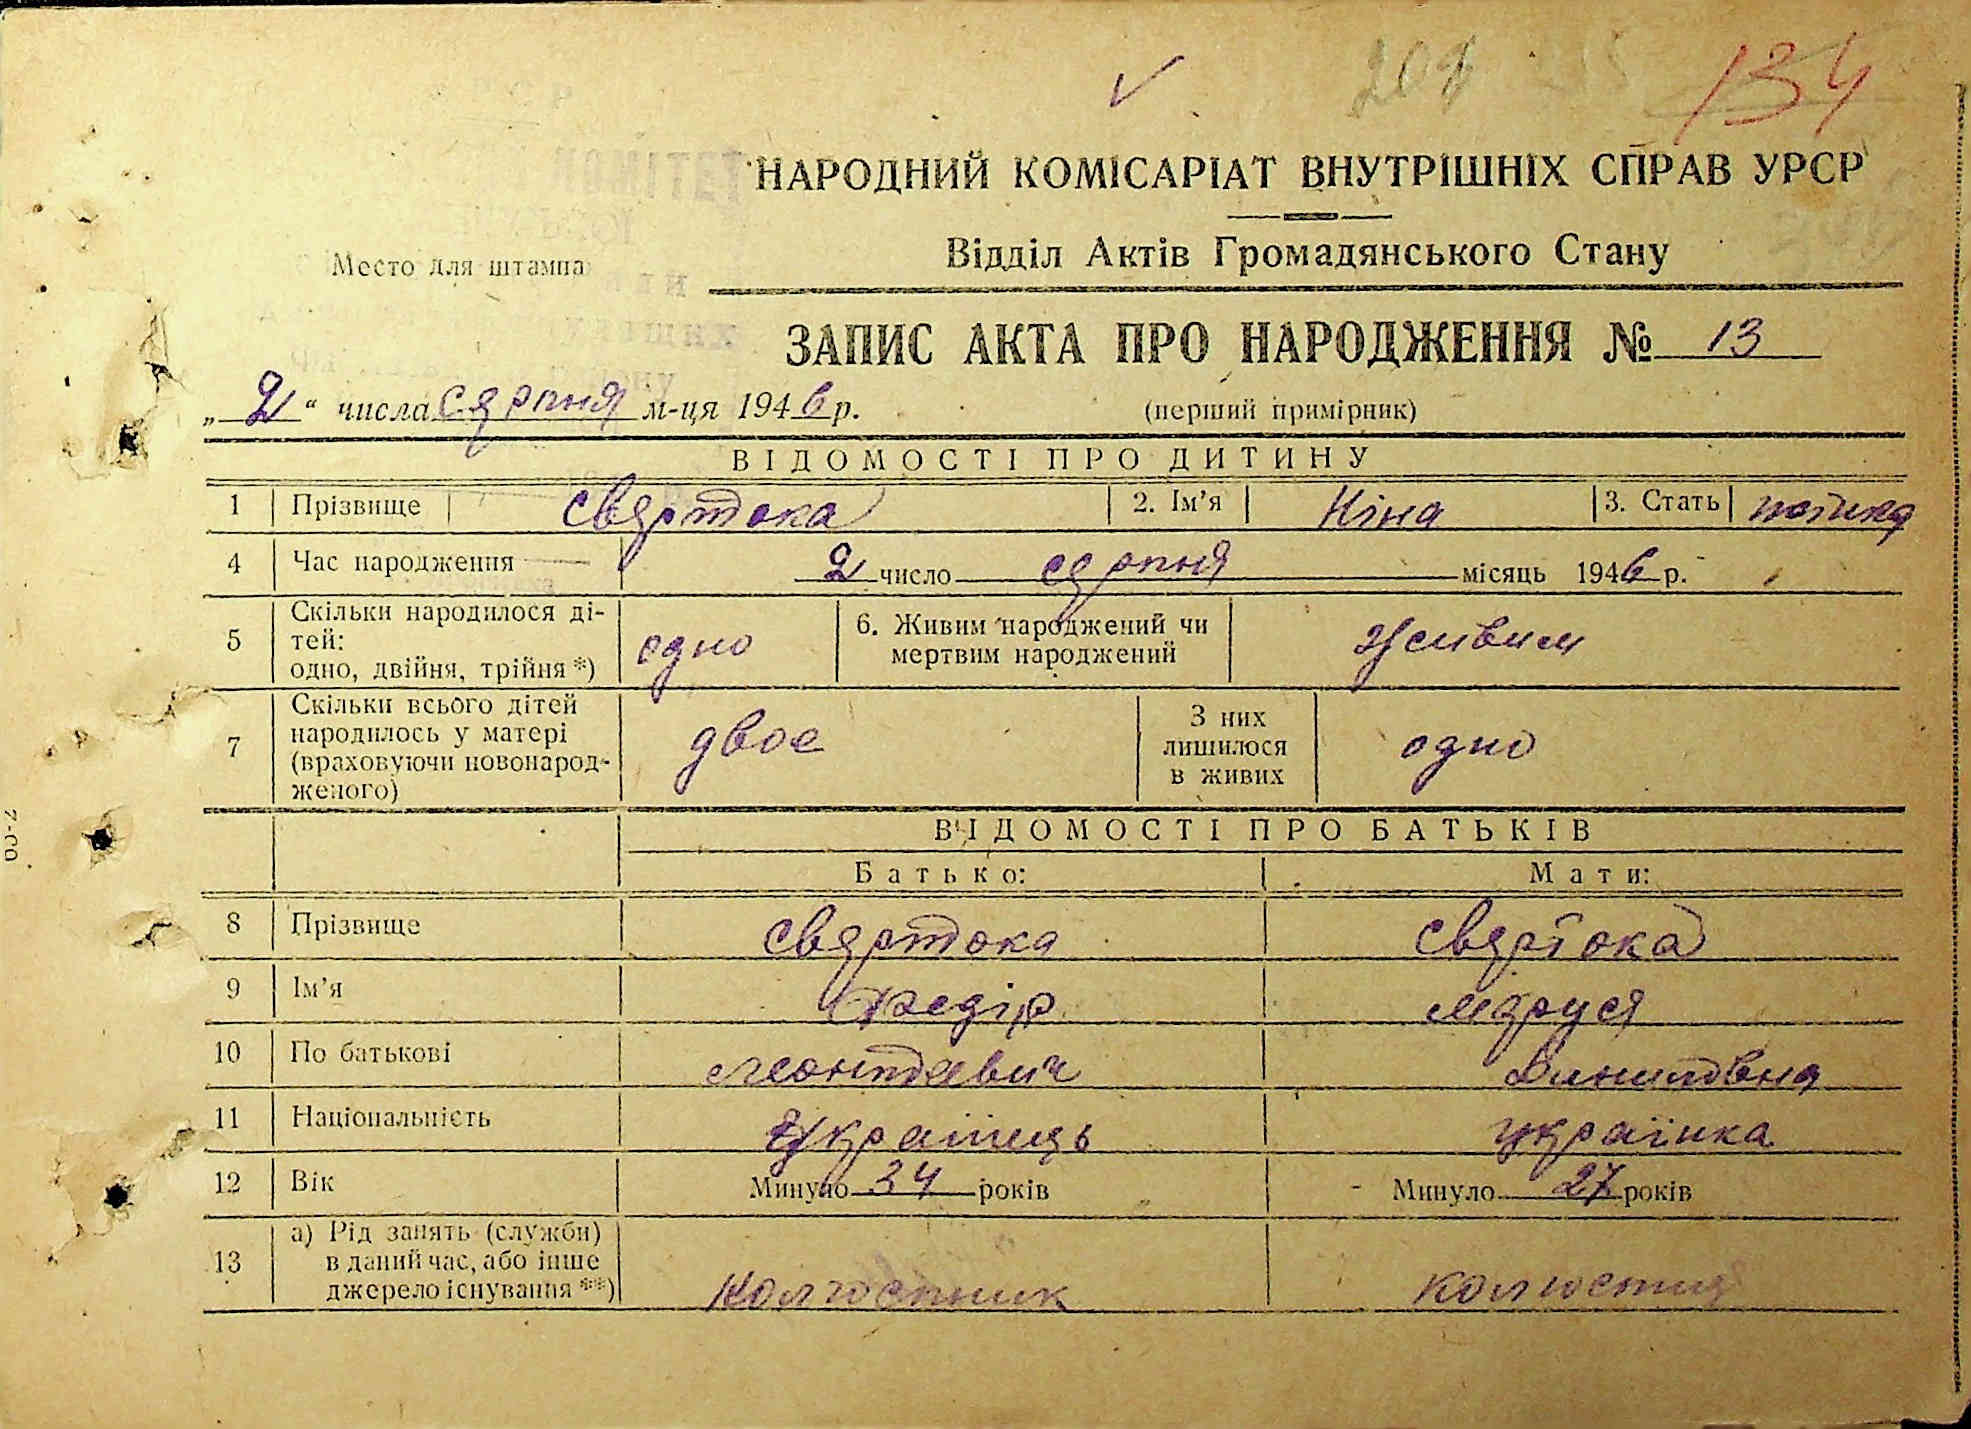 134
НАРОДНИЙ КОМІСАРІАТ ВНУТРІШНІХ СПРАВ УРСР
Відділ Актів Громадянського Стану
Место для штампа
ЗАПИС АКТА ПРО НАРОДЖЕННЯ № 13
„2“ числа серпня м-ця 1946 р.
(перший примірник)
ВІДОМОСТІ ПРО ДИТИНУ
1 Прізвище Свертока 2. Ім’я Ніна 3. Стать
4 Час народження 2 число серпня місяць 1946 р.
5 Скільки народилося ді-
тей:
одно, двійня, трійня *) одно 6. Живим народжений чи
мертвим народжений живим
7 Скільки всього дітей
народилось у матері
(враховуючи новонарод-
женого) двое З них
лишилося
в живих одно
ВІДОМОСТІ ПРО БАТЬКІВ
Батько: Мати:
8 Прізвище Свертока Свертока
9 Ім’я Федір Маруся
10 По батькові Леонтаевич Данилівна
11 Національність Українець українка
12 Вік Минуло 34 років Минуло 27 років
13 а) Рід занять (служби)
в даний час, або інше
джерело існування **) Колгоспник